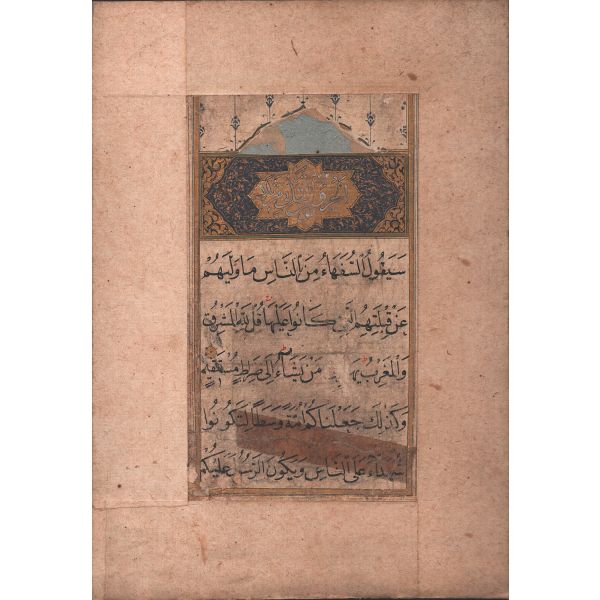 سَيَقُولُ السُّفَهَاءُ مِنَ النَّاسِ مَا وَلّٰيهُمْ
عَنْ قِبْلَتِهِمُ الَّتِي كَانُوا عَلَيْهَا قُلْ لِلّٰهِ الْمَشْرِقُ
وَالْمَغْرِبُ يَهـ مَنْ يَشَاءُ إِلٰى صِرَاطٍ مُسْتَقِيمٍ
وَكَذٰلِكَ جَعَلْنَاكُمْ أُمَّةً وَسَطًا لِتَكُونُوا
شُهَدَاءَ عَلَى النَّاسِ وَيَكُونَ الرَّسُولُ عَلَيْكُمْ